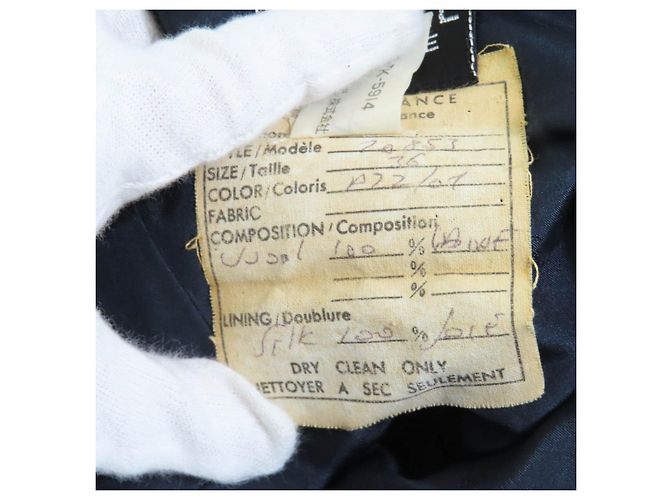 L
E
7K-5914
ANCE
ance
YLE/Modèle 20853
SIZE/Taille 36
COLOR/Coloris A22/01
FABRIC
COMPOSITION/Composition
Wool 100 % LAINE
%
%
LINING/Doublure
Silk 100 % Soie
DRY CLEAN ONLY
NETTOYER A SEC SEULEMENT